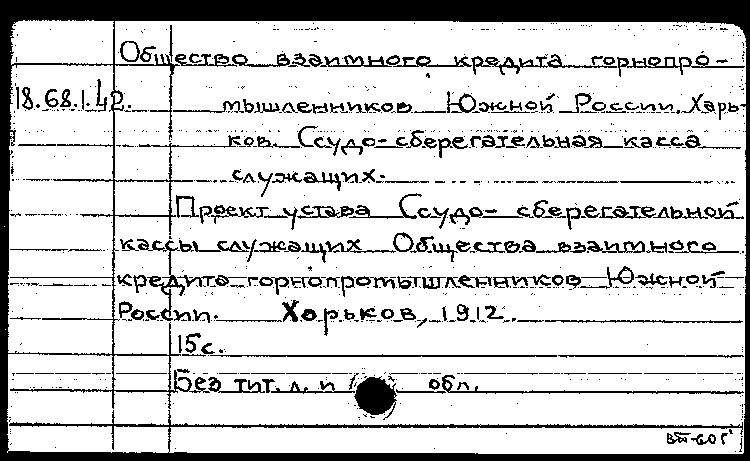 Общество взаимного кредита горнопро-
18.68.1.42.
мышленников Южной России. Харь-
ков. Ссудо-сберегательная касса
служащих.
Проект устава Ссудо-сберегательной
кассы служащих Общества взаимного
кредита горнопромышленников Южной
России. Харьков, 1912.
15с.
Без тит. л. и обл.